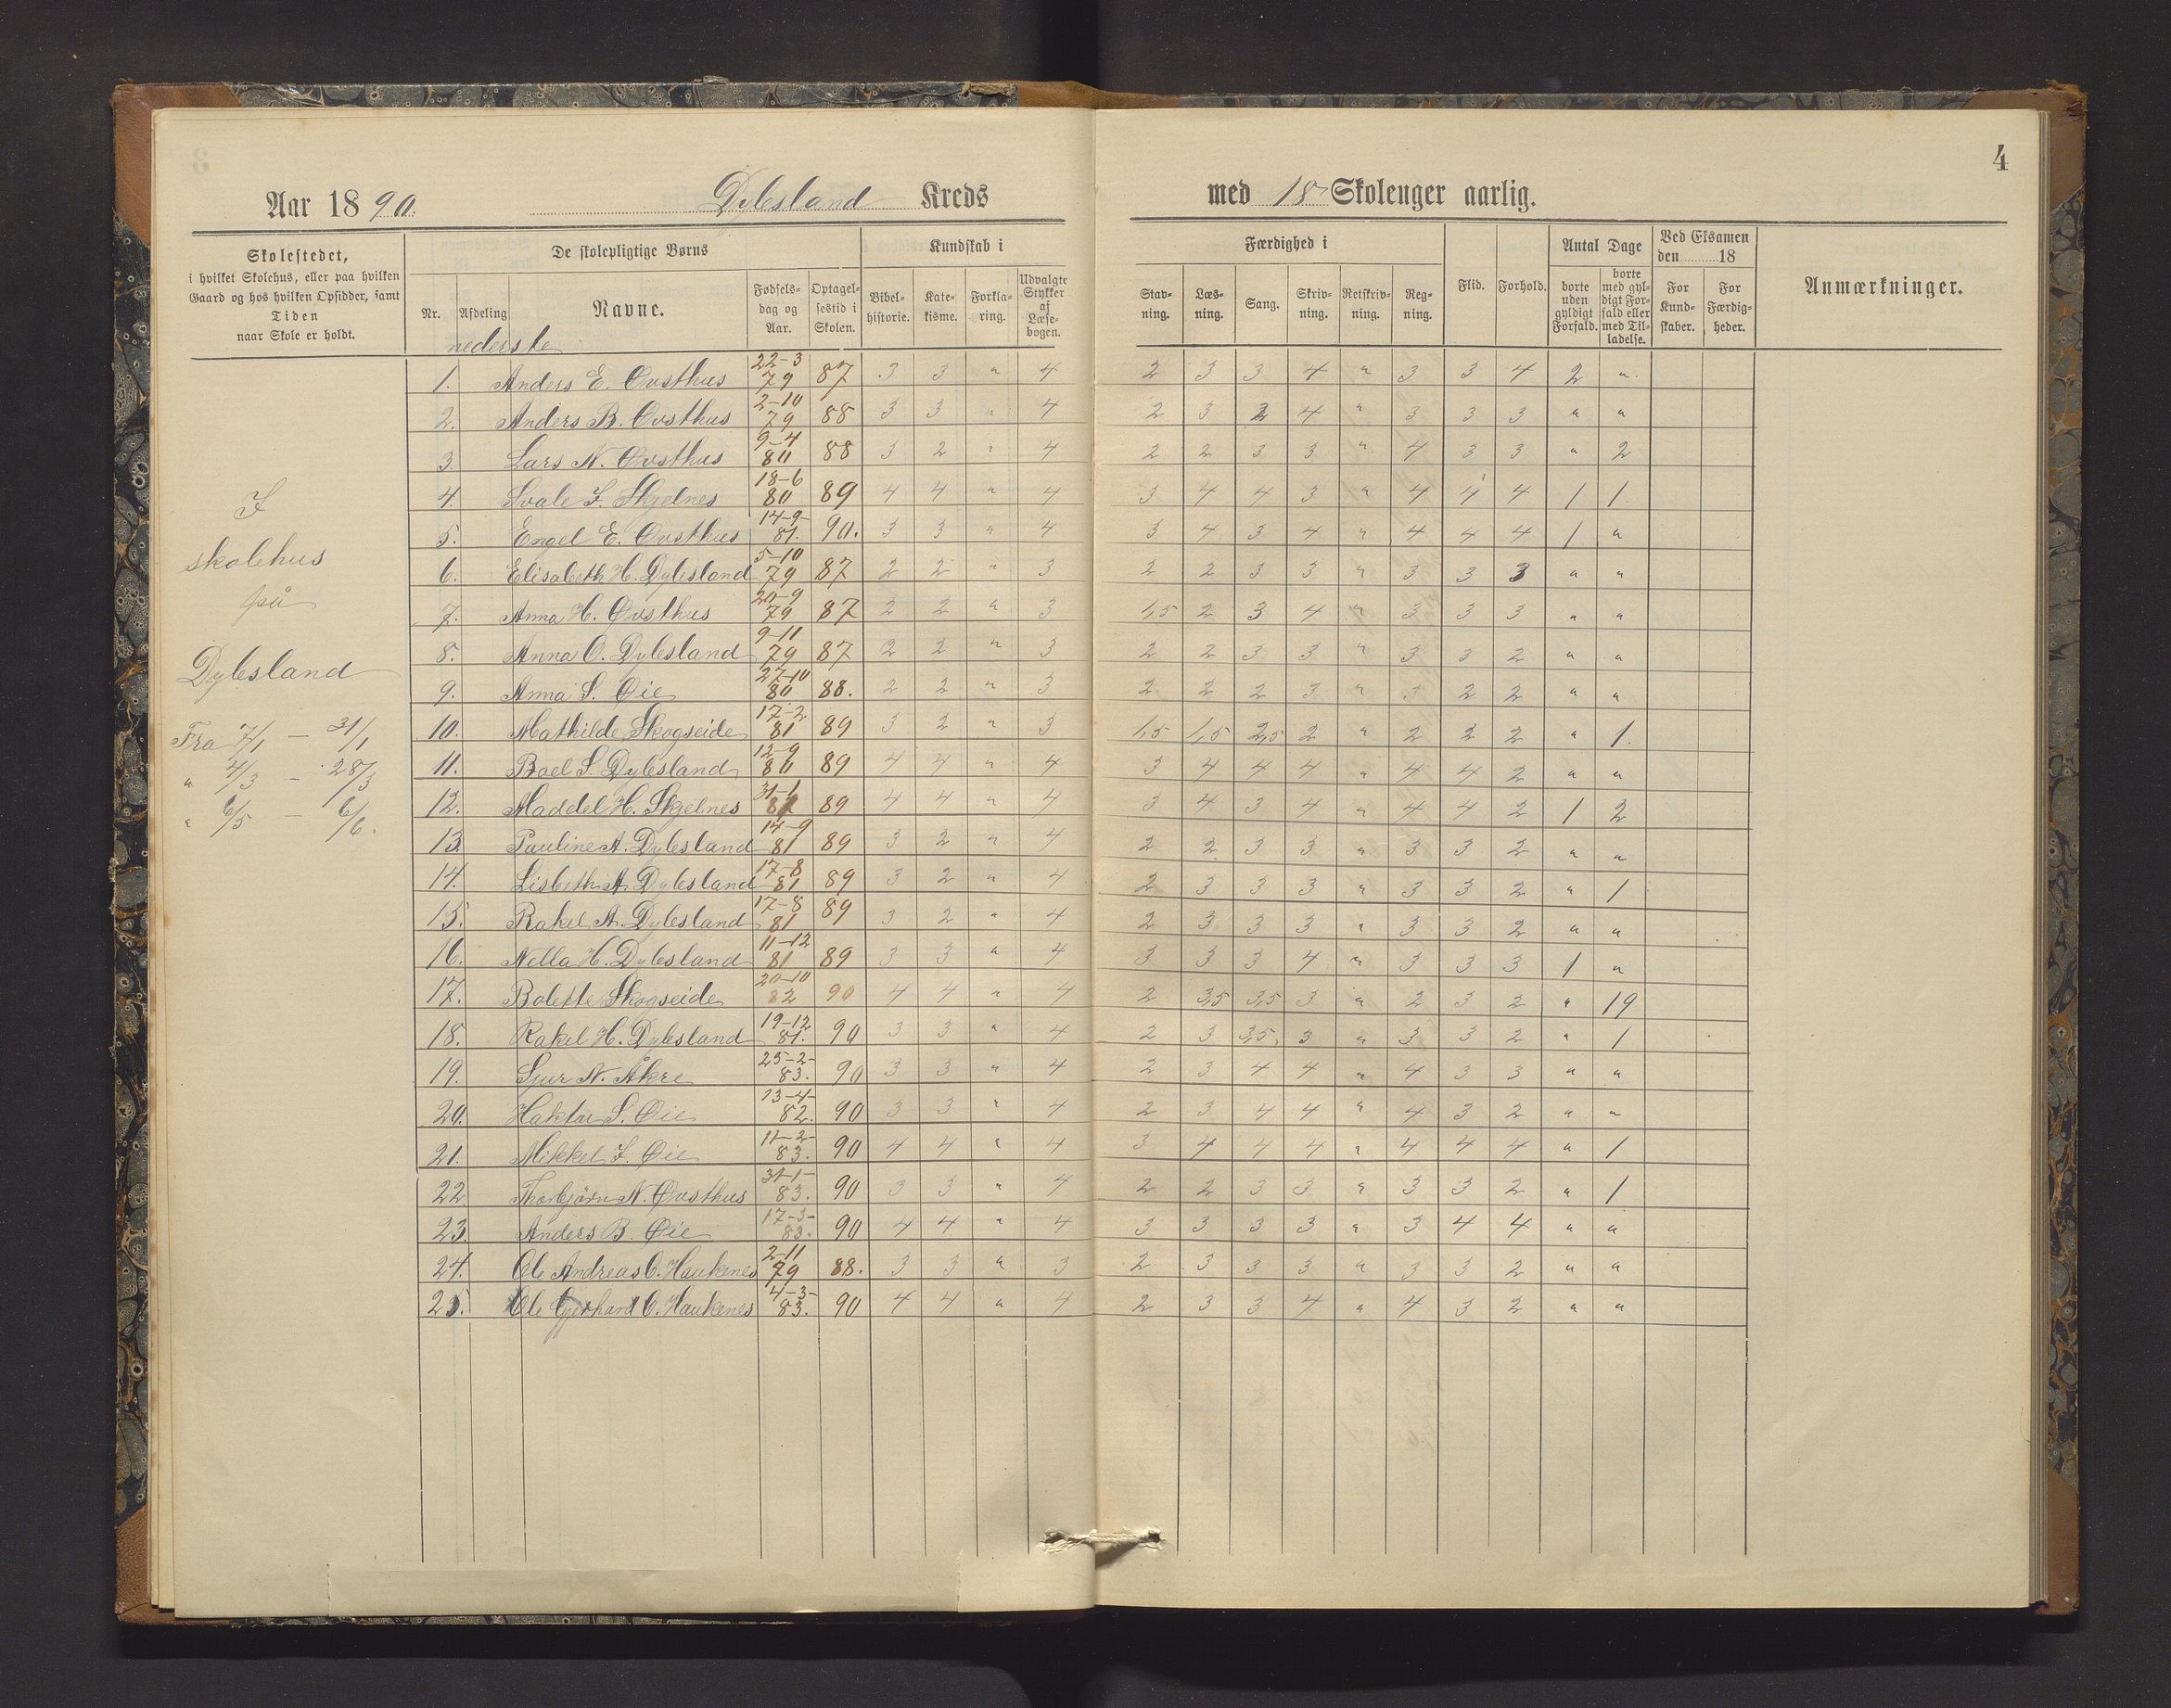 4
Aar 1890. Dylesland Kreds med 18 Skoleuger aarlig.
Skolestedet, i hvilket Skolehus, eller paa hvilken Gaard og hos hvilken Opsidder, samt Tiden naar Skole er holdt.
De skolepligtige Børns
Nr. Afdeling Navne. Fødsels-dag og Aar. Optagel-sestid i Skolen.
Kundskab i
Bibel-historie. Kate-kisme. Forkla-ring. Udvalgte Stykker af Læse-bogen.
Færdighed i
Stav-ning. Læs-ning. Sang. Skriv-ning. Retskriv-ning. Reg-ning.
Flid. Forhold.
Antal Dage
borte uden gyldigt Forfald. borte med gyl-digt For-fald eller med Til-ladelse.
Ved Eksamen den 18
For Kund-skaber. For Færdig-heder.
Anmærkninger.
I
skolehus
på
Dylesland
Fra 7/1 — 31/1
" 4/3 — 28/3
" 6/5 — 6/6.
nederste
1. Anders E. Øvsthus 22-3 79 87 3 3 " 4 2 3 3 4 " 3 3 4 2 "
2. Anders B. Øvsthus 2-10 79 88 3 3 " 4 2 3 2 4 " 3 3 3 " "
3. Lars N. Øvsthus 9-4 80 88 3 2 " 4 2 2 3 3 " 4 3 3 " 2
4. Svale F. Skjelnes 18-6 80 89 4 4 " 4 3 4 4 3 " 4 4 4 1 1
5. Engel E. Øvsthus 14-9- 81. 90. 3 3 " 4 3 4 3 4 " 4 4 4 1 "
6. Elisabeth H. Dylesland 5-10 79 87 2 2 " 3 2 2 3 3 " 3 3 3 " "
7. Anna H. Øvsthus 20-9 79 87 2 2 " 3 1,5 2 3 4 " 3 3 3 " "
8. Anna O. Dylesland 9-11 79 87 2 2 " 3 2 2 3 3 " 3 3 2 " "
9. Anna S. Øie 27-10 80 88. 2 2 " 3 2 2 2 3 " 3 2 2 " "
10. Mathilde Skogseide 17-2 81 89 3 2 " 3 1,5 1,5 2,5 2 " 2 2 2 " 1.
11. Boel S. Dylesland 12-9 80 89 4 4 " 4 3 4 4 4 " 4 4 2 " "
12. Maddel H. Skjelnes 31-1 89 4 4 " 4 3 4 3 4 " 4 4 2 1 2
13. Pauline A. Dylesland 14-9 81 89 3 2 " 4 2 2 3 3 " 3 3 2 " "
14. Lisbeth A. Dylesland 17-8 81 89 3 2 " 4 2 3 3 3 " 3 3 2 " 1
15. Rakel A. Dylesland 17-8 81 89 3 2 " 4 2 3 3 3 " 3 3 2 " "
16. Nella H. Dylesland 11-12 81 89 3 3 " 4 3 3 3 4 " 3 3 3 1 "
17. Bolette Skogseide 20-10 82 90 4 4 " 4 2 3,5 3,5 3 " 2 3 2 " 19
18. Rakel H. Dylesland 19-12 81. 90 3 3 " 4 2 3 3,5 3 " 3 3 2 " 1
19. Sjur N. Åkre 25-2- 83. 90 3 3 " 4 2 3 4 4 " 4 3 3 " "
20. Haktor S. Øie 13-4- 82. 90 3 3 " 4 2 3 4 4 " 4 3 2 " "
21. Mikkel F. Øie 11-2- 83. 90 4 4 " 4 3 4 4 4 " 4 4 4 " 1
22. Thorbjørn N. Øvsthus 31-1- 83. 90 3 3 " 4 2 2 3 3 " 3 3 2 " 1
23. Anders B. Øie 17-3- 83. 90 4 4 " 4 3 3 3 3 " 3 4 4 " "
24. Ole Andreas O. Haukenes 2-11 79 88. 3 3 " 3 2 3 3 3 " 3 3 2 " "
25. Ole Gjerhard O. Haukenes 4-3- 83. 90 4 4 " 4 2 3 3 4 " 4 3 2 " "